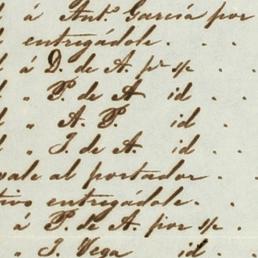 l á Ant.º García por
l entregádole . . .
l á D. de A. p.r s/c . .
l " P. de A id . .
l " A. P. id . .
l " J. de A. id . .
vale al portador .
tivo entregádole .
á P. de A. por s/c .
" J. Vega id .